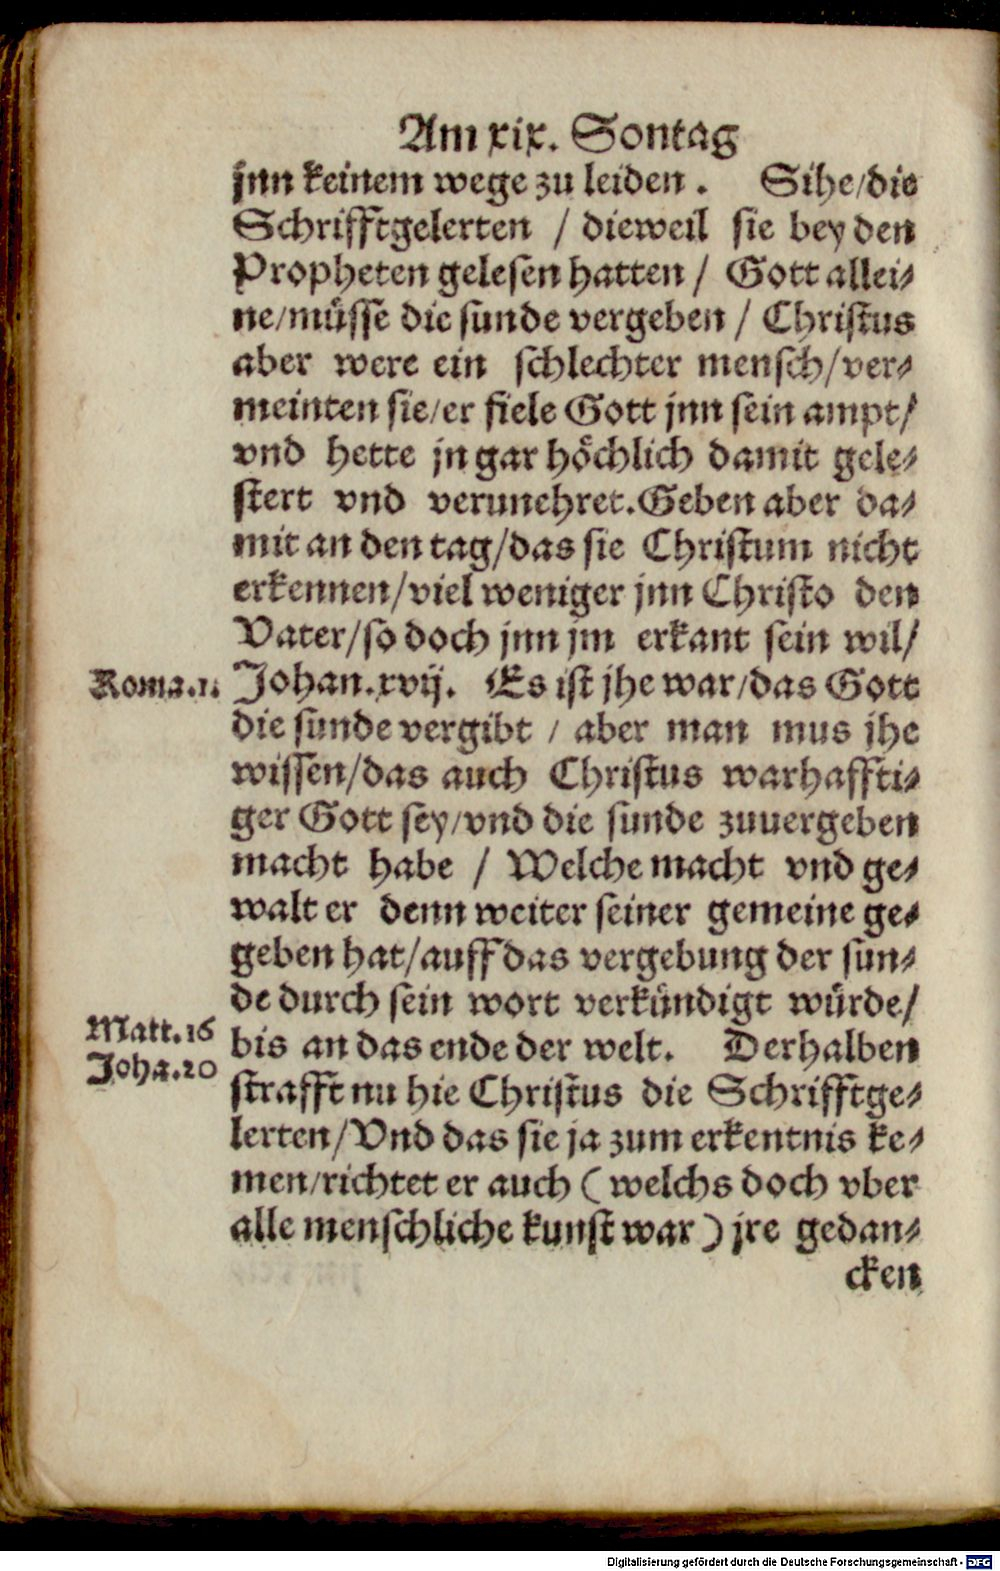 Am xix. Sontag
jnn keinem wege zu leiden. Sihe/die
Schrifftgelerten / dieweil sie bey den
Propheten gelesen hatten / Gott allei-
ne/müsse die sunde vergeben / Christus
aber were ein schlechter mensch/ver-
meinten sie/er fiele Gott jnn sein ampt/
vnd hette jn gar höchlich damit gele-
stert vnd verunehret. Geben aber da-
mit an den tag/das sie Christum nicht
erkennen/viel weniger jnn Christo den
Vater/so doch jnn jm erkant sein wil/
Roma.1. Johan.xvij. Es ist jhe war/das Gott
die sunde vergibt / aber man mus jhe
wissen/das auch Christus warhaffti-
ger Gott sey/vnd die sunde zuuergeben
macht habe / Welche macht vnd ge-
walt er denn weiter seiner gemeine ge-
geben hat/auff das vergebung der sun-
de durch sein wort verkündigt würde/
Matt.16
Joha.20
bis an das ende der welt. Derhalben
strafft nu hie Christus die Schrifftge-
lerten/Vnd das sie ja zum erkentnis ke-
men/richtet er auch (welchs doch vber
alle menschliche kunst war) jre gedan-
cken
Digitalisierung gefördert durch die Deutsche Forschungsgemeinschaft - DFG